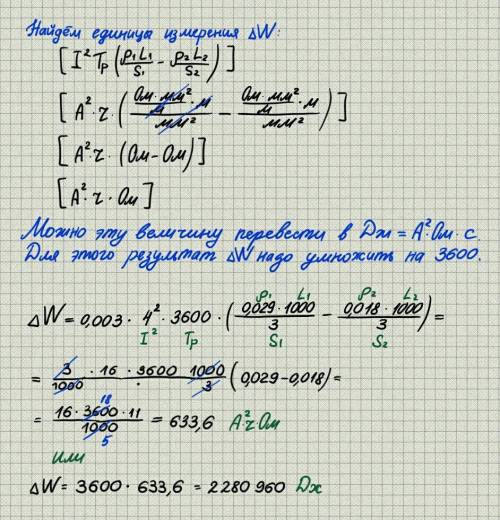 Найдём единица измерения ΔW:
[ I² Tp · ( ρ₁L₁/S₁ − ρ₂L₂/S₂ ) ]
[ A² · ч · ( (Ом · мм²/м · м)/мм² − (Ом · мм²/м · м)/мм² ) ]
[ A² · ч · (Ом − Ом) ]
[ A² · ч · Ом ]
Можно эту величину перевести в Дж = A² · Ом · с.
Для этого результат ΔW надо умножить на 3600.
ρ₁ L₁ ρ₂ L₂
ΔW = 0,003 · 4² · 3600 · ( 0,029 · 1000/3 − 0,018 · 1000/3 ) =
I² Tp S₁ S₂
= 3/1000 · 16 · 3600 · 1000/3 (0,029 − 0,018) =
= 16 · 3600 · 11/1000 = 633,6 A² · ч · Ом
18
5
или
ΔW = 3600 · 633,6 = 2280 960 Дж